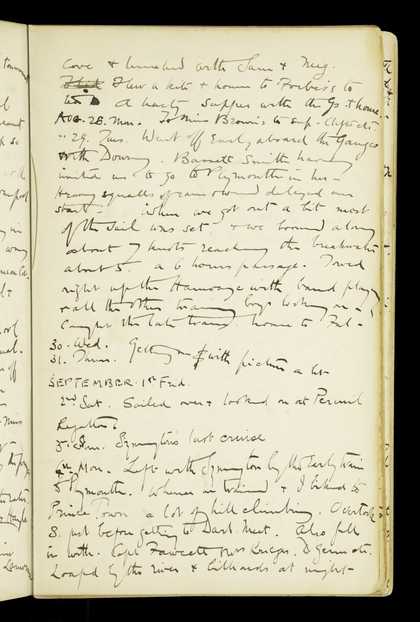 cove & lunched with Sam & Meg.
Flew a kite & home to Forbes's to
A hasty supper with the Gs & home.
AUG. 28. Mon. To Miss Brown's to sup.
" 29. Tues. Went off early aboard the Ganges
with Downing. Bassett Smith having
invited us to go to Plymouth in her -
Heavy squalls of rain & wind delayed our
start. When we got out a bit most
of the sail was set & we boomed along
about 7 knots reaching the breakwater
about 5. a 6 hours passage. Towed
right up the Hamoaze with band playing
& all the other training boys looking on -
Caught the late train home to Fal -
30. Wed.
31. Thurs. Getting on with picture a bit
SEPTEMBER 1st Frid.
2nd Sat. Sailed over & looked on at Percuil
Regatta.
3. Sun. Symington's last cruise
4th Mon. Left with Symington by the early train
to Plymouth. Whence we trained & I biked to
Prince Town a lot of hill climbing. Overtook
S. just before getting to Dart Meet. Also fell
in with Capt Fawcett
Loafed by the river & billiards at night -